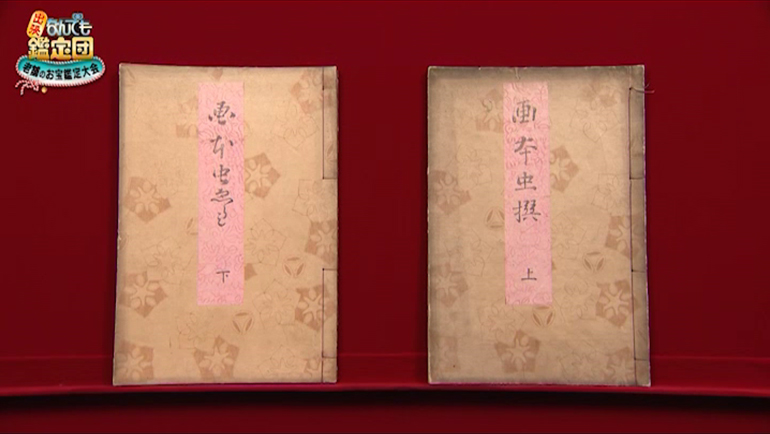 出張
なんでも
鑑定団
老舗のお宝鑑定大会
画本虫撰
上
画本虫ゑらミ
下